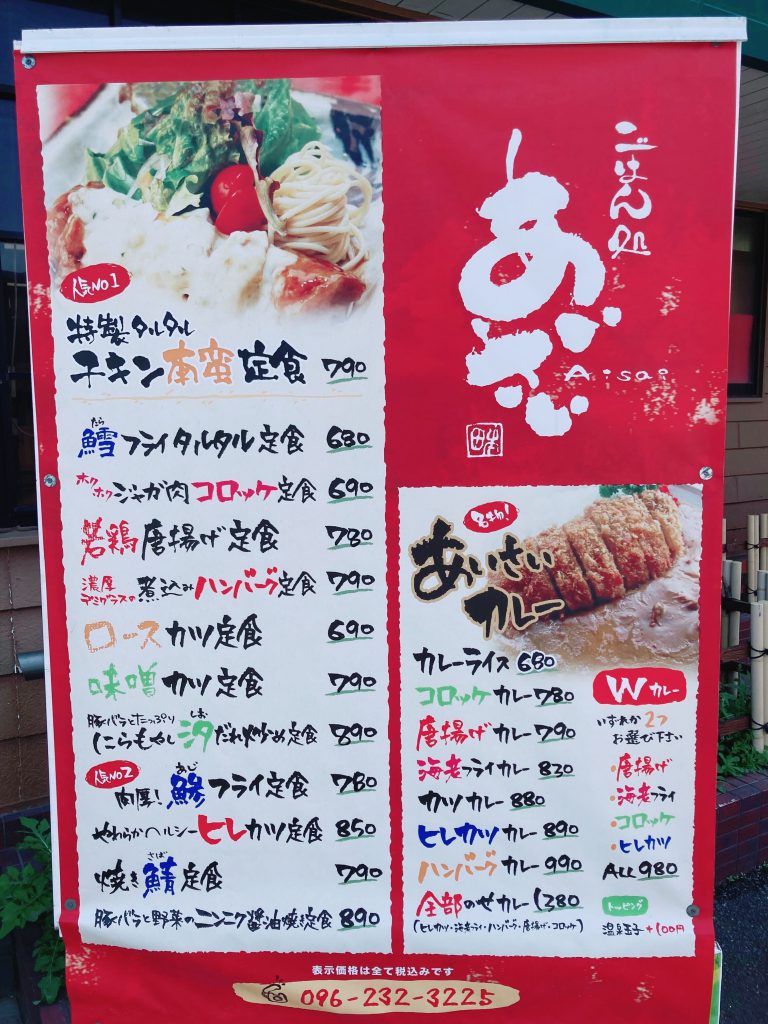 ごはん処
あいさい
Aisai
人気NO1
特製タルタル
チキン南蛮定食 790
たら
鱈フライタルタル定食 680
ホクホクジャガ肉コロッケ定食 690
若鶏唐揚げ定食 780
濃厚デミグラスの煮込みハンバーグ定食 790
ロースカツ定食 690
味噌カツ定食 790
豚バラとたっぷり
にらもやし汐だれ炒め定食 890
しお
人気NO2
あじ
肉厚!鯵フライ定食 780
やわらかヘルシーヒレカツ定食 850
さば
焼き鯖定食 790
豚バラと野菜のニンニク醤油焼き定食 890
名物!
あいさい
カレー
カレーライス 680
コロッケカレー 780
唐揚げカレー 790
海老フライカレー 830
カツカレー 880
ヒレカツカレー 890
ハンバーグカレー 990
全部のせカレー 1380
(ヒレカツ・海老フライ・ハンバーグ・唐揚げ・コロッケ)
Wカレー
いずれか2つ
お選び下さい
・唐揚げ
・海老フライ
・コロッケ
・ヒレカツ
ALL 980
トッピング
温玉子+100円
表示価格は全て税込みです
096-232-3225